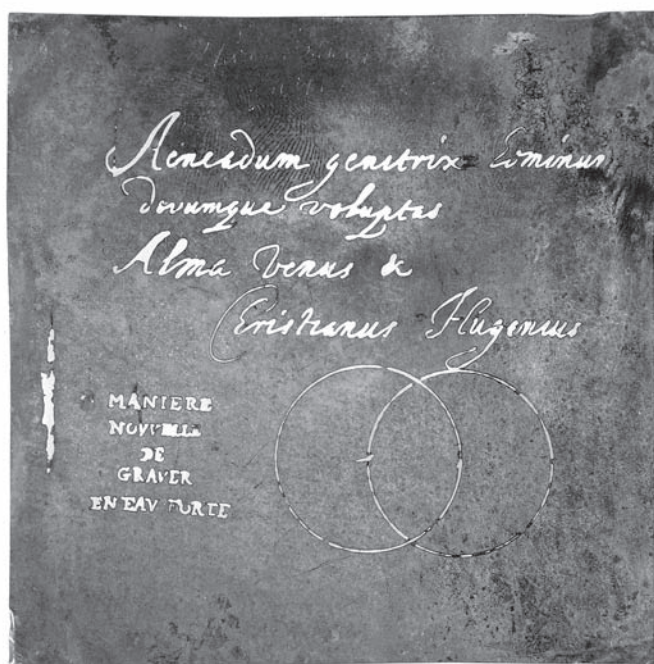 Aeneadum genitrix hominus
divumque voluptas
Alma Venus &
Christianus Hugenius
MANIERE
NOVVELLE
DE
GRAVER
EN EAV FORTE